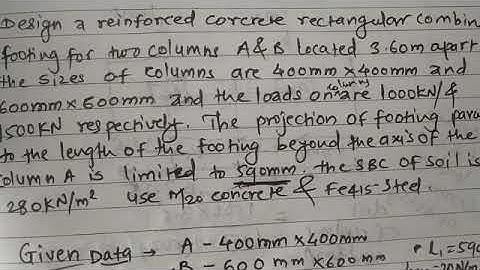 Design a reinforced corcrete rectangular combin
footing for two columns A & B located 3.60m apart
the sizes of columns are 400mm×400mm and
600mm×600mm and the loads on columns are 1000KN/&
1500KN respectively. The projection of footing para
to the length of the footing beyond the axis of the
olumn A is limited to 590mm. the SBC of soil is
280KN/m² use M20 concrete & Fe415-Steel.
Given Data → A - 400mm×400mm
B - 600mm×600mm
L₁=590